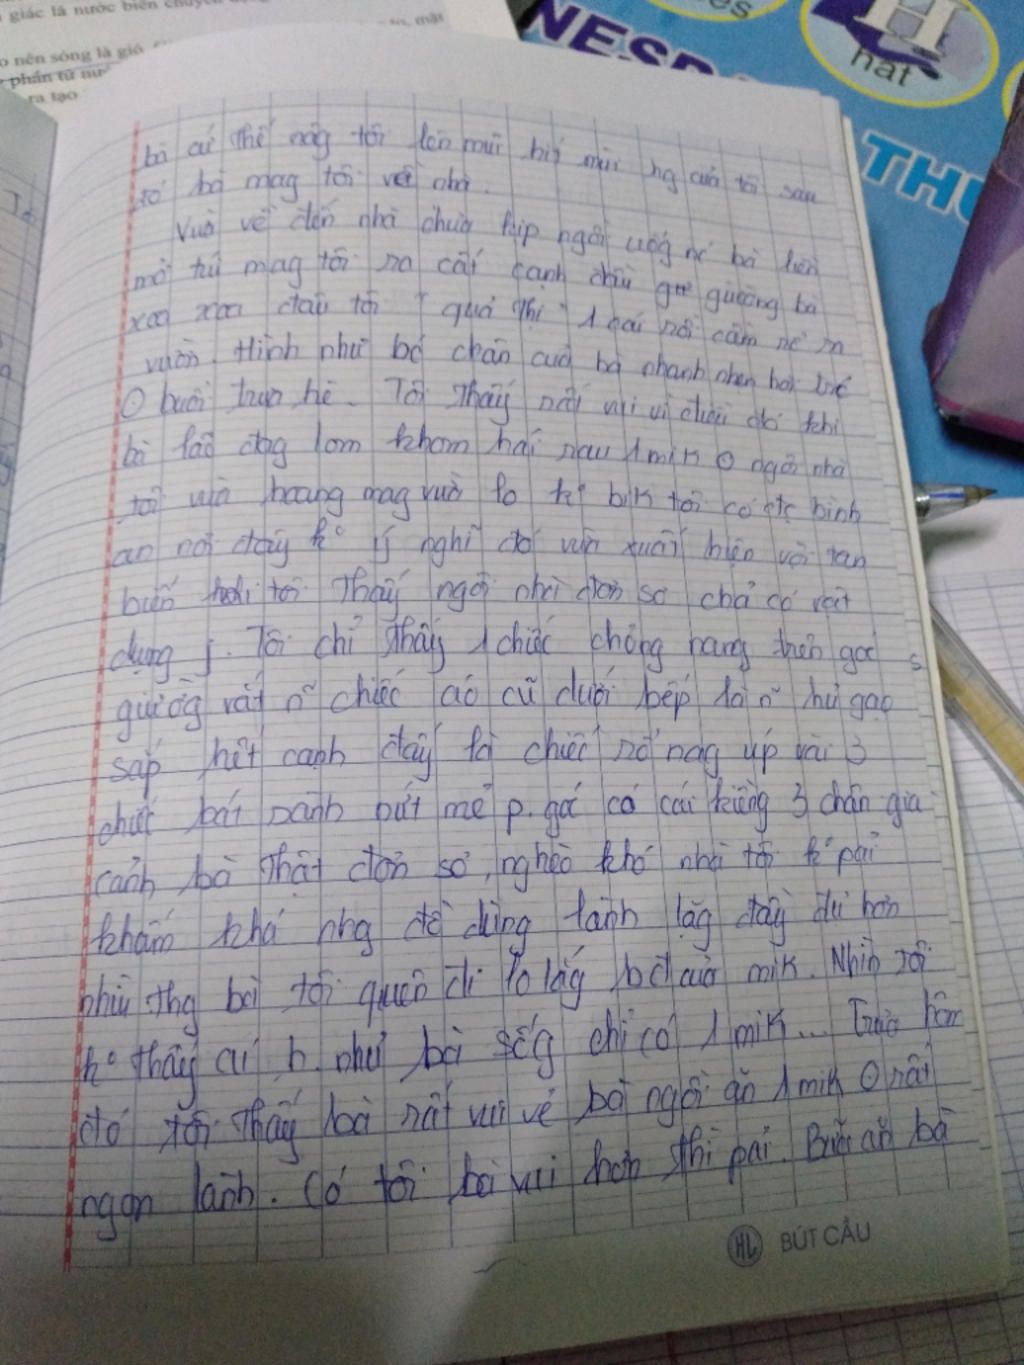 giác là nước biển chuyển
nên sóng là gió
phần tử
ra tạo
mặt
NESD
H
hat
THU
bà cứ thế nâg tôi lên mũi hít mùi hg của tôi sau
đó bà mag tôi về nhà.
Vừa về đến nhà chưa kịp ngồi uốg nc bà liền
mở túi mag tôi ra cất cạnh đầu giường bà
xoa xoa đầu tôi " quả thị " 1 cái rồi cầm nc ra
vườn. Hình như bc chân của bà nhanh nhẹn hơi
buổi trưa hè. Tôi thấy rất vui vì điều đó khi
bà lão đag lom khom hái rau 1 mik ngôi nhà
tôi vừa hoang mag vừa lo k° bik tôi có đc bình
an nơi đây k° ý nghĩ đó vừa xuất hiện vội tan
biến tôi thấy ngôi nhà đơn sơ chả có vật
dụng j. Tôi chỉ thấy 1 chiếc chõng trên góc
giườg vắt n~ chiếc áo cũ dưới bếp là n~ hũ gạo
sắp hết cạnh đấy là chiếc rổ úp vài 3
chiếc bát sành sứt mẻ p. góc có cái kiềng 3 chân gia
cảnh bà thật đơn sơ, nghèo khó nhà tôi k° pải
khấm khá nhg đồ dùng lành lặg đầy đủ hơn
như thg bà tôi quên đi lo lắg bđ của mik. Nhìn
k° thấy ai h. như bà sốg chỉ có 1 mik... Trưa hôm
đó tôi thấy bà rất vui vẻ bà ngồi ăn 1 mik rất
ngon lành. Có tôi bà vui hơn thì pải. Bữa ăn bà
HL BÚT CẦU